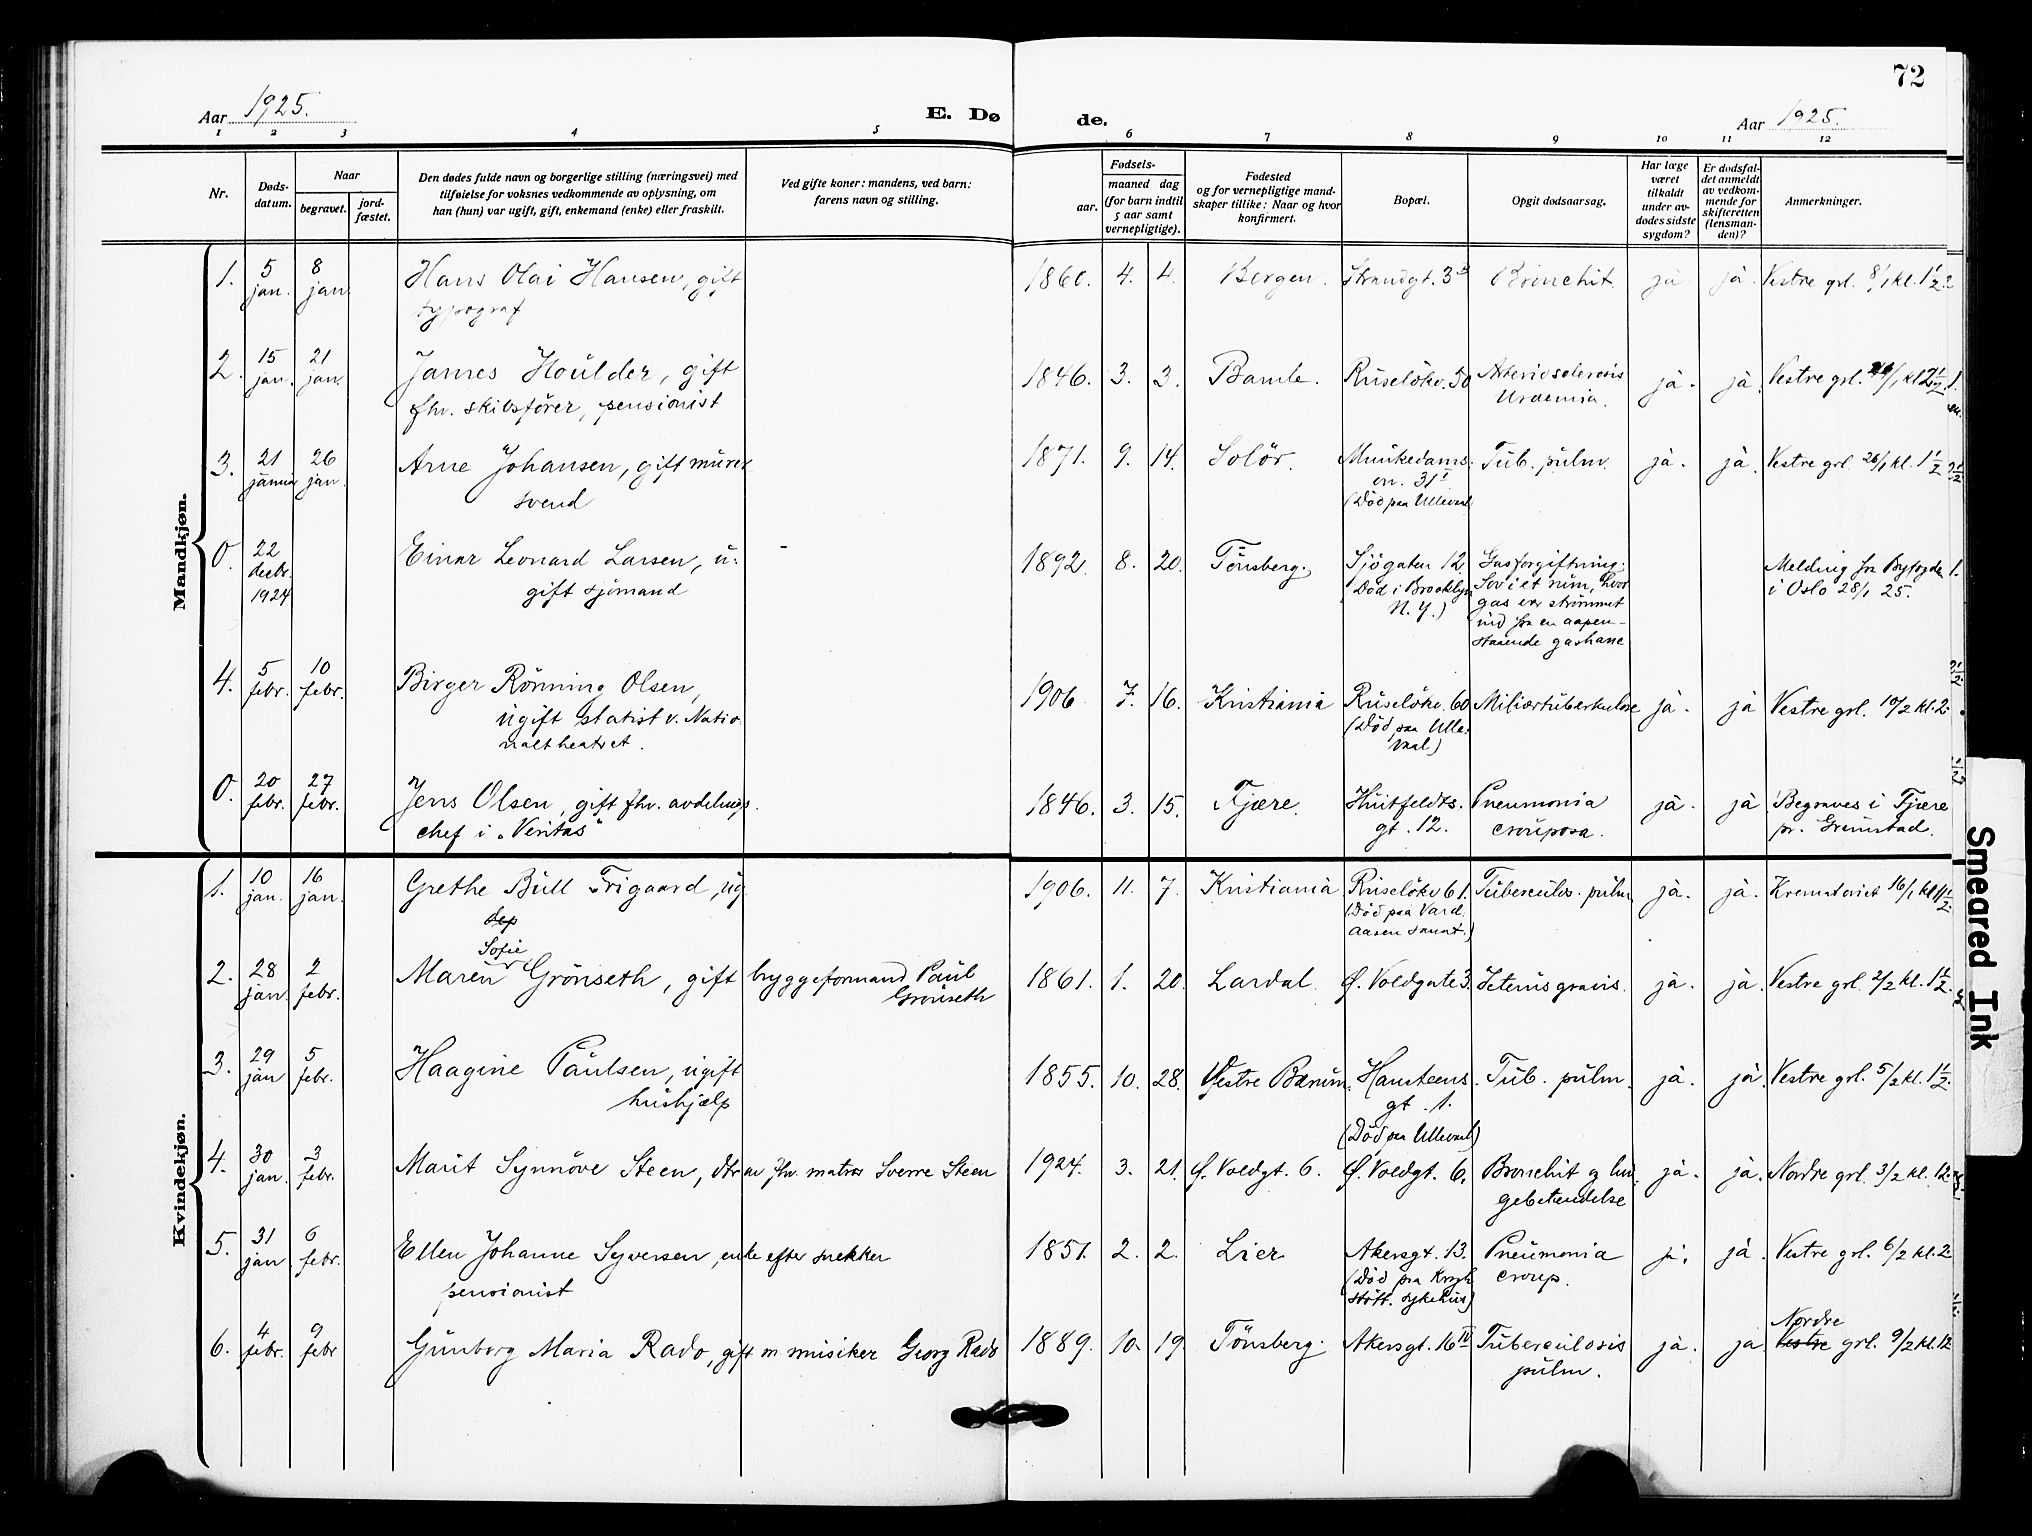 72
Aar 1925.
E. Dø de.
Aar 1925.
1 2 3 4 5 6 7 8 9 10 11 12
Nr.
Døds-datum.
Naar
begravet.
jord-fæstet.
Den dødes fulde navn og borgerlige stilling (næringsvei) med
tilføielse for voksnes vedkommende av oplysning, om
han (hun) var ugift, gift, enkemand (enke) eller fraskilt.
Ved gifte koner: mandens, ved barn:
farens navn og stilling.
Fødsels-
aar.
maaned dag
(for barn indtil
5 aar samt
vernepligtige).
Fødested
og for vernepligtige mand-
skaper tillike: Naar og hvor
konfirmert.
Bopæl.
Opgit dødsaarsag.
Har læge
været
tilkaldt
under av-
dødes sidste
sygdom?
Er dødsfal-
det anmeldt
av vedkom-
mende for
skifteretten
(lensman-
den)?
Anmerkninger.
Mandkjøn.
1. 5 jan. 8 jan Hans Olai Hansen, gift 1860. 4. 4. Bergen. Strandgt. 3 Bronchit. ja ja. Vestre grl. 8/1 kl. 1 1/2
typograf
2. 15 jan. 21 jan. James Houlder, gift 1846. 3. 3. Bamle. Ruseløkv. 30 Arteriosclerosis ja. ja. Vestre grl.
fhv. skibsfører, pensionist Uraemia.
3. 21 januar 26 jan. Arne Johansen, gift murer 1871. 9. 14. Solør. Munkedams- Tub. pulm. ja. ja. Vestre grl. 26/1 kl. 1 1/2
svend vn. 31 I
(Død paa Ulleval)
0. 22 decbr. 1924 Einar Leonard Larsen, u- 1892. 8. 20. Tønsberg. Sjøgaten 12 Gasforgiftning: Melding fra Byfogden
gift sjømand (Død i Brooklyn N.Y.) Sov i et rum, hvor i Oslo 28/1 25.
gas var strømmet
ind fra en aapen-
staaende gashane
4. 5 febr. 10 febr. Birger Rønning Olsen, 1906 7. 16. Kristiania Ruseløkv. 60 Miliærtuberkulose ja. ja Vestre grl. 10/2 kl. 2.
ugift statist v. Natio- (Død paa Ulle-
naltheatret. vaal.)
0. 20 febr. 27 febr. Jens Olsen, gift fhv. avdelings- 1846. 3. 15. Fjære. Huitfeldts- Pneumonia ja. ja Begraves i Fjære
chef i „Veritas“ gt. 12. crouposa. pr. Grimstad.
Kvindekjøn.
1. 10 jan. 16 jan. Grethe Bull Frigaard, ug. 1906. 11. 7. Kristiania Ruseløkv 61. Tubercules. pulm. ja. ja. Krematoriet 16/1 kl 11 1/2.
(Død paa Vard-
aasen sanat.)
Sofie
2. 28 jan. 2 febr. Maren Grønseth, gift bryggeformand Paul 1861. 1. 20. Lardal. Ø. Voldgate 3. Icterus gravis. ja. ja. Vestre grl. 2/2 kl. 1 1/2.
Grønseth
3. 29 jan 5 febr. Haagine Paulsen, ugift 1855. 10. 28. Vestre Bærum. Hansteens- Tub. pulm. ja. ja. Vestre grl. 5/2 kl. 1 1/2.
hushjælp gt. 1.
(Død paa Ulleval)
4. 30 jan. 3 febr. Marit Synnøve Steen, dtr av fhv. matros Sverre Steen 1924. 3. 21. Ø. Voldgt. 6. Ø. Voldgt. 6. Bronchit og lun- ja. ja. Nordre grl. 3/2 kl. 12.
gebetændelse
5. 31 jan 6 febr. Ellen Johanne Syversen, enke efter snekker 1851. 2. 2. Lier Akersgt. 13. Pneumonia ja. ja. Vestre grl. 6/2 kl. 2
pensionist (Død paa Krogh croup.
støtt. sykehus)
Nordre
6. 4 febr. 9 febr Gunborg Maria Rado, gift m musiker Georg Rado 1889. 10. 19. Tønsberg. Akersgt. 16 IV Tuberculosis ja. ja Vestre grl. 9/2 kl. 12
pulm.
Smeared Ink